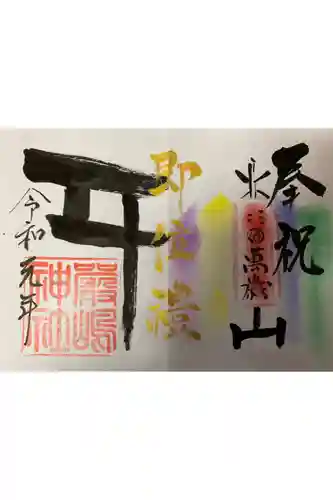 奉祝
山
即位禮
令和元年
嚴嶋
神社